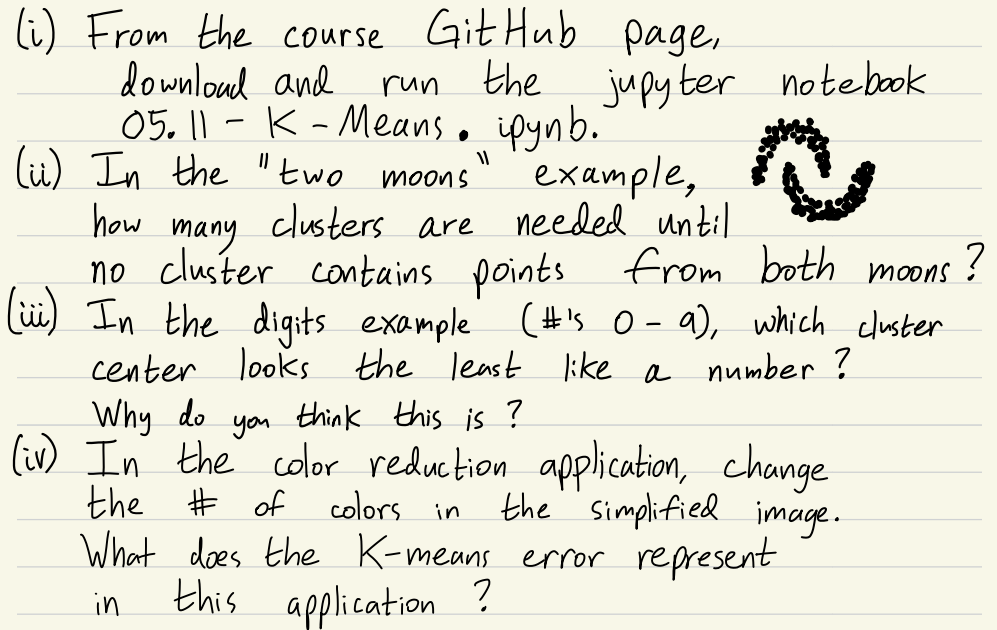 (i) From the course GitHub page,
download and run the jupyter notebook
05.11 - K - Means . ipynb.
(ii) In the "two moons" example,
how many clusters are needed until
no cluster contains points from both moons ?
(iii) In the digits example (#'s 0 - 9), which cluster
center looks the least like a number ?
Why do you think this is ?
(iv) In the color reduction application, change
the # of colors in the simplified image.
What does the K-means error represent
in this application ?